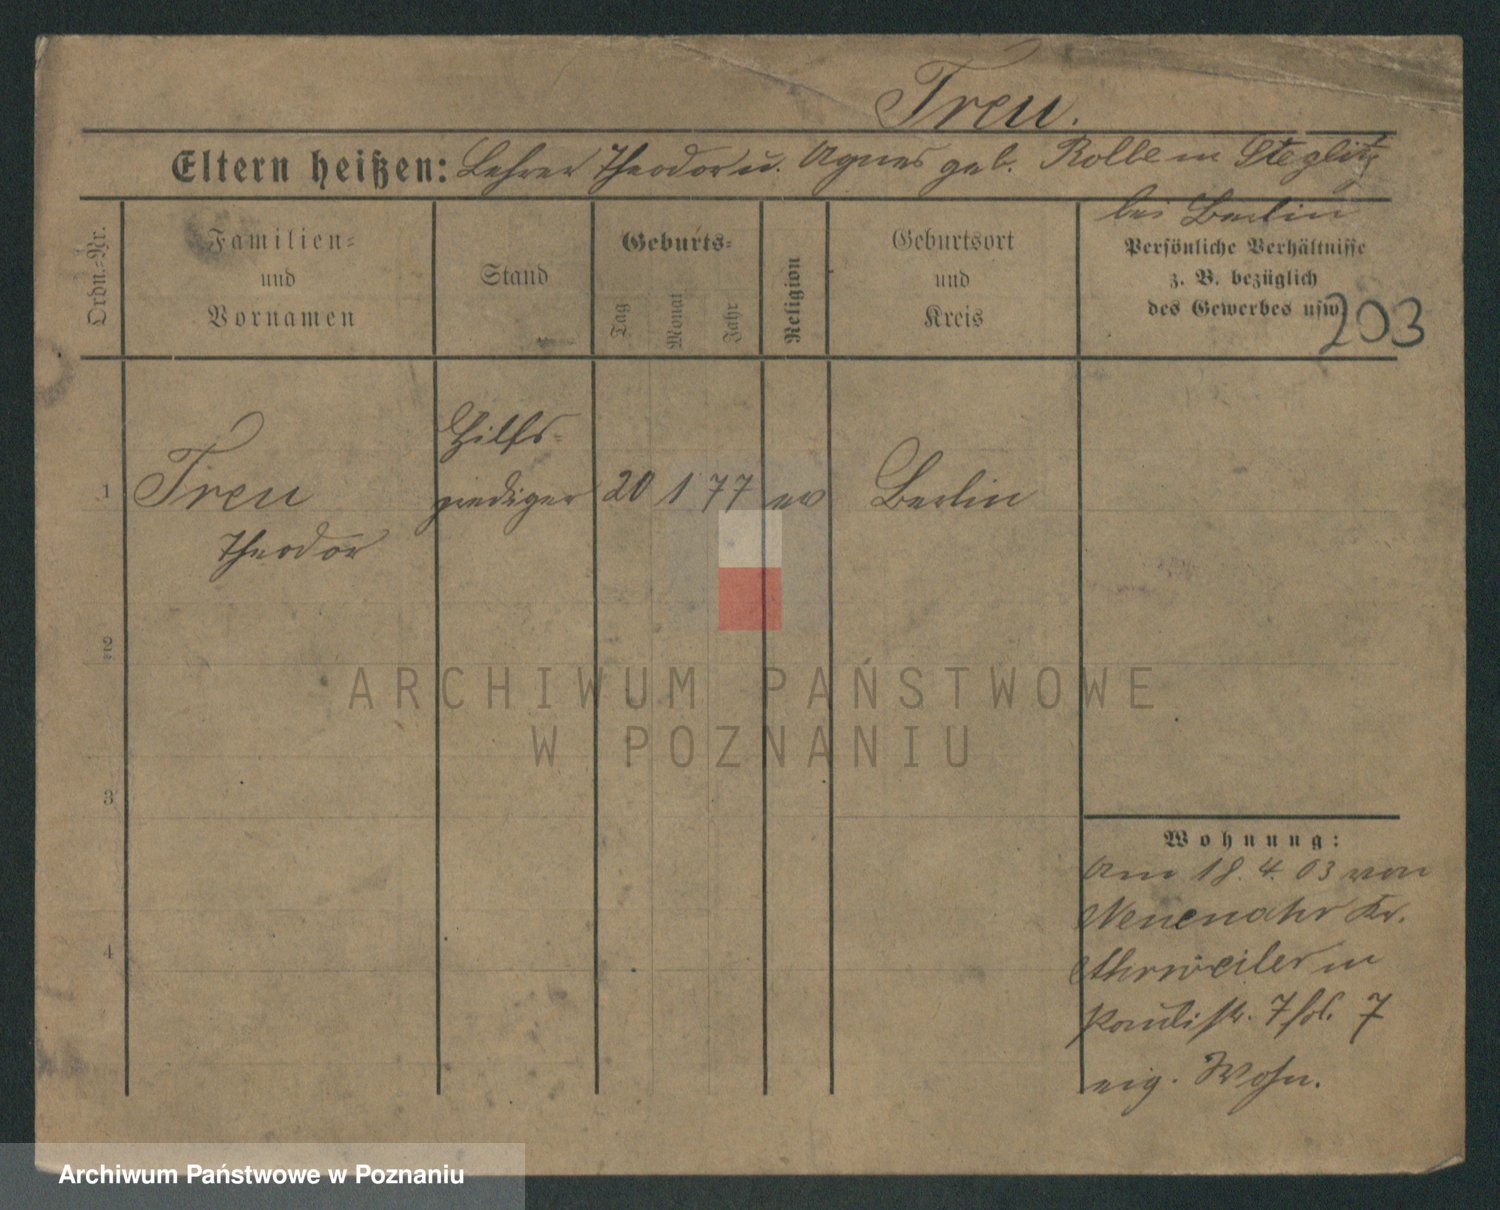 Treu.
Eltern heißen: Lehrer Theodor u. Agnes geb. Rolle in Steglitz
bei Berlin
Ordn.-Nr.
Familien-
und
Vornamen
Stand
Geburts-
Tag
Monat
Jahr
Religion
Geburtsort
und
Kreis
Persönliche Verhältnisse
z. B. bezüglich
des Gewerbes usw.
203
1 Treu Hilfs-
prediger 20 1 77 ev Berlin
Theodor
2
3
4
ARCHIWUM PAŃSTWOWE
W POZNANIU
Wohnung:
Am 18. 4. 03 von
Neuenahr Kr.
Ahrweiler in
Paulistr. 7 7
eig. Wohn.
Archiwum Państwowe w Poznaniu